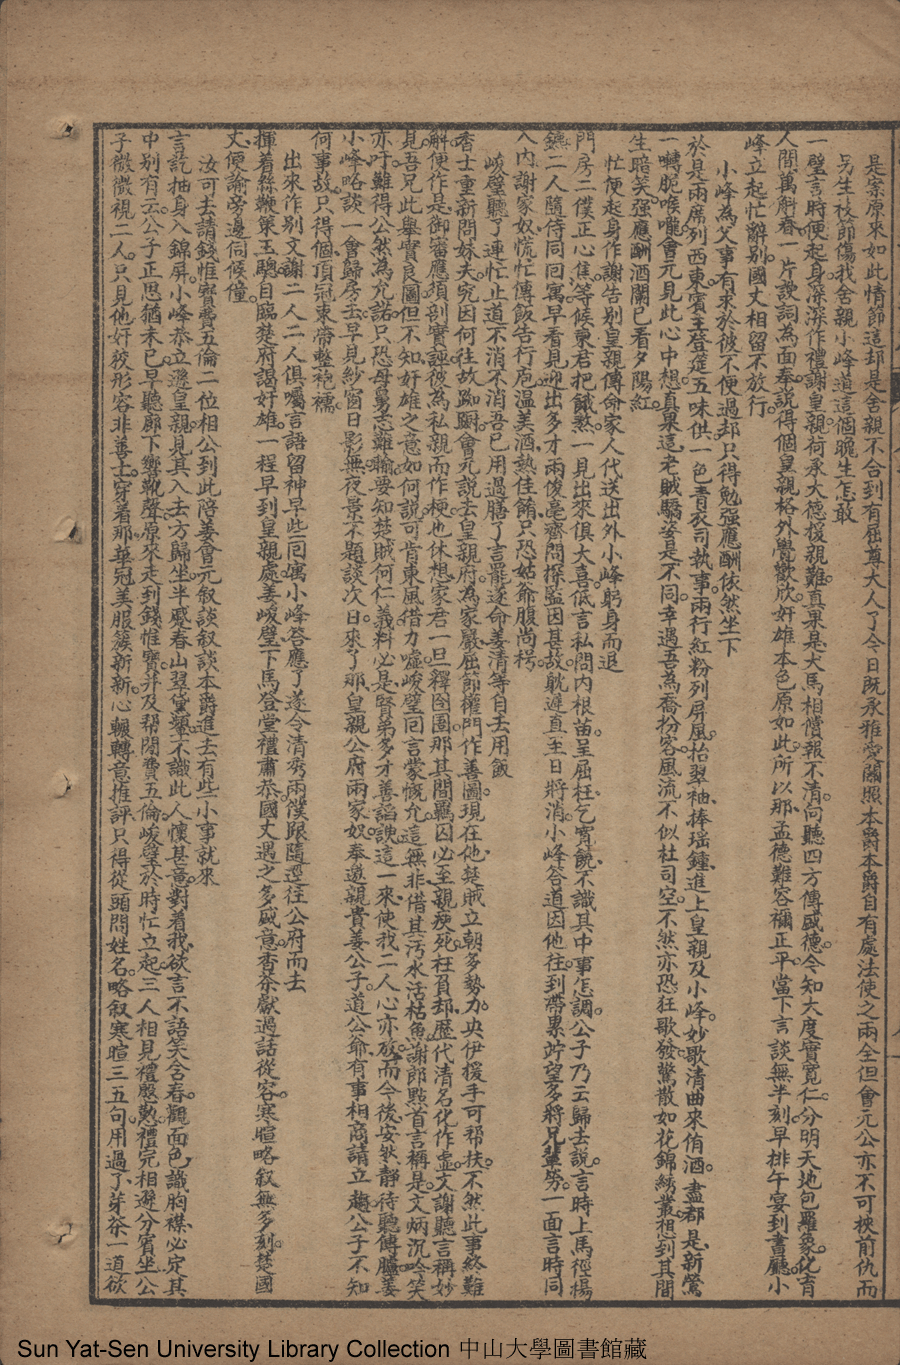 是崇原來如此情節這却是舍親不合到有屈尊大人了今日既承雅愛關照本爵本爵自有處法使之兩全但會元公亦不可挾前仇而
另生枝節傷我舍親小峰道這個晚生怎敢
一壁言時便起身深深作禮謝皇親荷承大德援親難真果是犬馬相償報不清向聽四方傳盛德今知大度實寬仁分明天地包羅象化育
人間萬斛春一片諛詞為面奉說得個皇親格外覺歡欣奸雄本色原如此所以那孟德難容禰正平當下言談無半刻早排午宴到書廳小
峰立起忙辭別國丈相留不放行
小峰為父事有求於彼不便過却只得勉強應酬依然坐下
於是兩席列西東賓主登筵五味供一色青衣司執事兩行紅粉列屏風抬翠袖捧瑶鐘進上皇親及小峰妙歌清曲來侑酒盡都是新鶯
一囀脆喉嚨會元見此心中想真果這老賊驕姿是不同幸遇吾為喬扮客風流不似杜司空不然亦恐狂歌發驚散如花錦綉叢想到其間
生暗笑强應酬酒闌已看夕陽紅
忙便起身作謝告别皇親傳命家人代送出外小峰躬身而退
門房二僕正心焦等候東君把餓熬一見出來俱大喜低言私問内根苗呈屈枉乞宵饒不識其中事怎調公子乃云歸去說言時上馬徑揚
鑣二人隨侍同回寓早看見迎出多才兩俊毫齊問探監因甚故躭遲直至日將消小峰答道因他往到帶累竚望多將兄輩勞一面言時同
入内謝家奴慌忙傳飯告行庖温美酒熱佳餚只恐姑爺腹尚枵
峻璧聽了連忙止道不消不消吾已用過膳了言罷遂命姜清等自去用飯
香士重新問妹夫究因何往故踟蹰會元說去皇親府為家嚴屈節權門作善圖現在他楚賊立朝多勢力央伊援手可帮扶不然此事終難
解便作是御審應須剖實誣彼為私親而作梗也休想家君一旦釋囹圄那其間羈囚必至親瘐死枉負却歷代清名化作虛文謝聽言稱妙
見吾兄此舉實良圖但不知奸雄之意如何說可肯東風借力噓峻璧回言蒙慨允這無非借其污水活枯魚謝郎點首言稱是文炳沉吟笑
亦吁雖得公然為允諾只恐母舅忿難輸要知楚賊何仁義料必是賢弟多才善諂諛這一來使我二人心亦放而今後安然靜待聽傳臚姜
小峰略談一會歸房去早見紗窗日影無夜景不題談次日來了那皇親公府兩家奴奉邀親貴姜公子道公爺有事相商請立趨公子不知
何事故只得個頂冠束帶整袍襦
出來作别文謝二人二人俱囑言語留神早些回寓小峰答應了遂令清秀兩僕跟隨逕往公府而去
揮着絲鞭策玉驄自臨楚府謁奸雄一程早到皇親處姜峻璧下馬登堂禮肅恭國丈遇之多感意香茶獻過話從容寒暄略叙無多刻楚國
丈便諭旁邊伺候僮
汝可去請錢惟寶費五倫二位相公到此陪姜會元叙談叙談本爵進去有些小事就來
言訖抽身入錦屏小峰恭立遜皇親見其入去方歸坐半蹙春山翠黛顰不識此人懷甚意對着我欲言不語笑含春觀面色識胸襟必定其
中别有云公子正思猶未已早聽廊下響靴聲原來走到錢惟寶并及帮閒費五倫峻璧於時忙立起三人相見禮慇懃禮完相遜分賓坐公
子微微視二人只見他奸狡形容非善士穿着那華冠美服簇新新心輾轉意推評只得從頭問姓名略叙寒暄三五句用過了芽茶一道欲
Sun Yat-Sen University Library Collection 中山大學圖書館藏